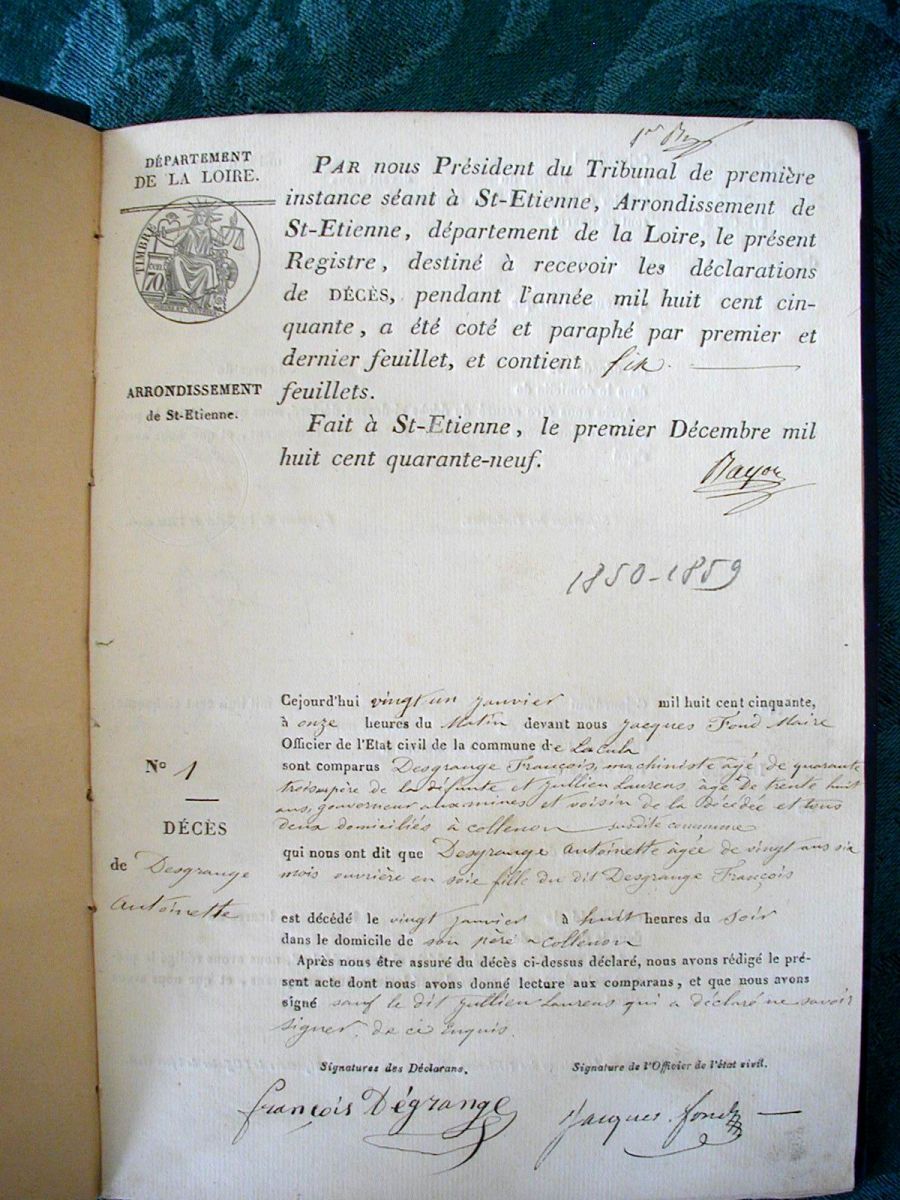 DÉPARTEMENT
DE LA LOIRE.
TIMBRE
70
PAR nous Président du Tribunal de première
instance séant à St-Etienne, Arrondissement de
St-Etienne, département de la Loire, le présent
Registre, destiné à recevoir les déclarations
de DÉCÈS, pendant l'année mil huit cent cin-
quante, a été coté et paraphé par premier et
dernier feuillet, et contient six
feuillets.
ARRONDISSEMENT
de St-Etienne.
Fait à St-Etienne, le premier Décembre mil
huit cent quarante-neuf.
1850-1859
Cejourd'hui vingt un janvier mil huit cent cinquante,
à onze heures du Matin devant nous Jacques Fond Maire
Officier de l'Etat civil de la commune de Lacula
sont comparus Desgrange François, machiniste âgé de quarante
trois, père de la défunte et Jullien Laurens âgé de trente huit
ans, gouverneur aux mines et voisin de la décédée et tous
deux domiciliés à Collenon susdite commune
qui nous ont dit que Desgrange Antoinette âgée de vingt ans six
mois ouvrière en soie fille du dit Desgrange François
est décédé le vingt janvier à huit heures du Soir
dans le domicile de son père à Collenon
Après nous être assuré du décès ci-dessus déclaré, nous avons rédigé le pré-
sent acte dont nous avons donné lecture aux comparans, et que nous avons
signé sauf le dit Jullien Laurens qui a déclaré ne savoir
signer, de ce enquis.
No 1
DÉCÈS
de Desgrange
Antoinette
Signatures des Déclarans.
Signature de l'Officier de l'état civil.
françois Dégrange
Jacques fond